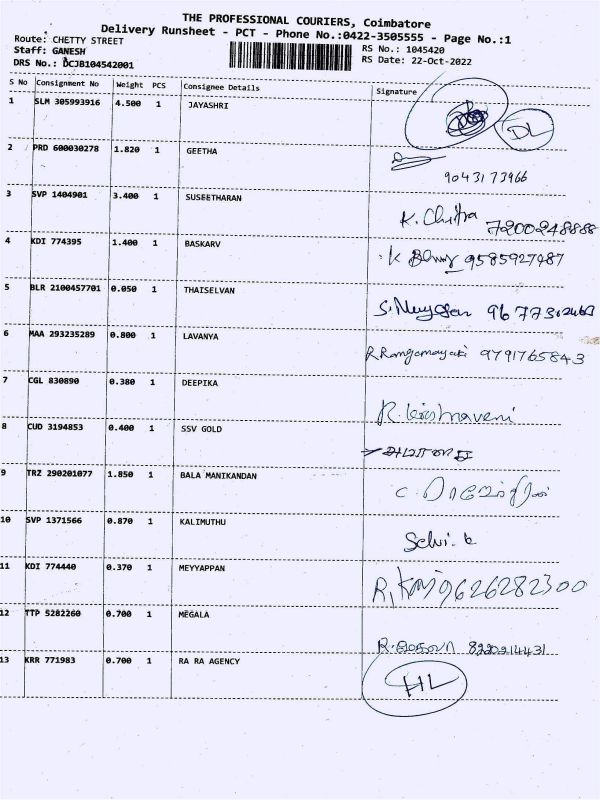 THE PROFESSIONAL COURIERS, Coimbatore
Delivery Runsheet - PCT - Phone No.:0422-3505555 - Page No.:1
Route: CHETTY STREET
RS No.: 1045420
Staff: GANESH
RS Date: 22-Oct-2022
DRS No.: DCJB104542001
S No Consignment No Weight PCS Consignee Details Signature
1 SLM 305993916 4.500 1 JAYASHRI DL
2 PRD 600030278 1.820 1 GEETHA
9043173966
3 SVP 1404901 3.400 1 SUSEETHARAN
K. Chitra 7200248888
4 KDI 774395 1.400 1 BASKARV
K 9585927487
5 BLR 2100457701 0.050 1 THAISELVAN
6 MAA 293235289 0.800 1 LAVANYA
9791765843
7 CGL 830890 0.380 1 DEEPIKA
R. Krishnaveni
8 CUD 3194853 0.400 1 SSV GOLD
9 TRZ 290201077 1.850 1 BALA MANIKANDAN
10 SVP 1371566 0.870 1 KALIMUTHU
Selvi. k
11 KDI 774440 0.370 1 MEYYAPPAN
9626282300
12 TTP 5282260 0.700 1 MEGALA
13 KRR 771983 0.700 1 RA RA AGENCY
HL